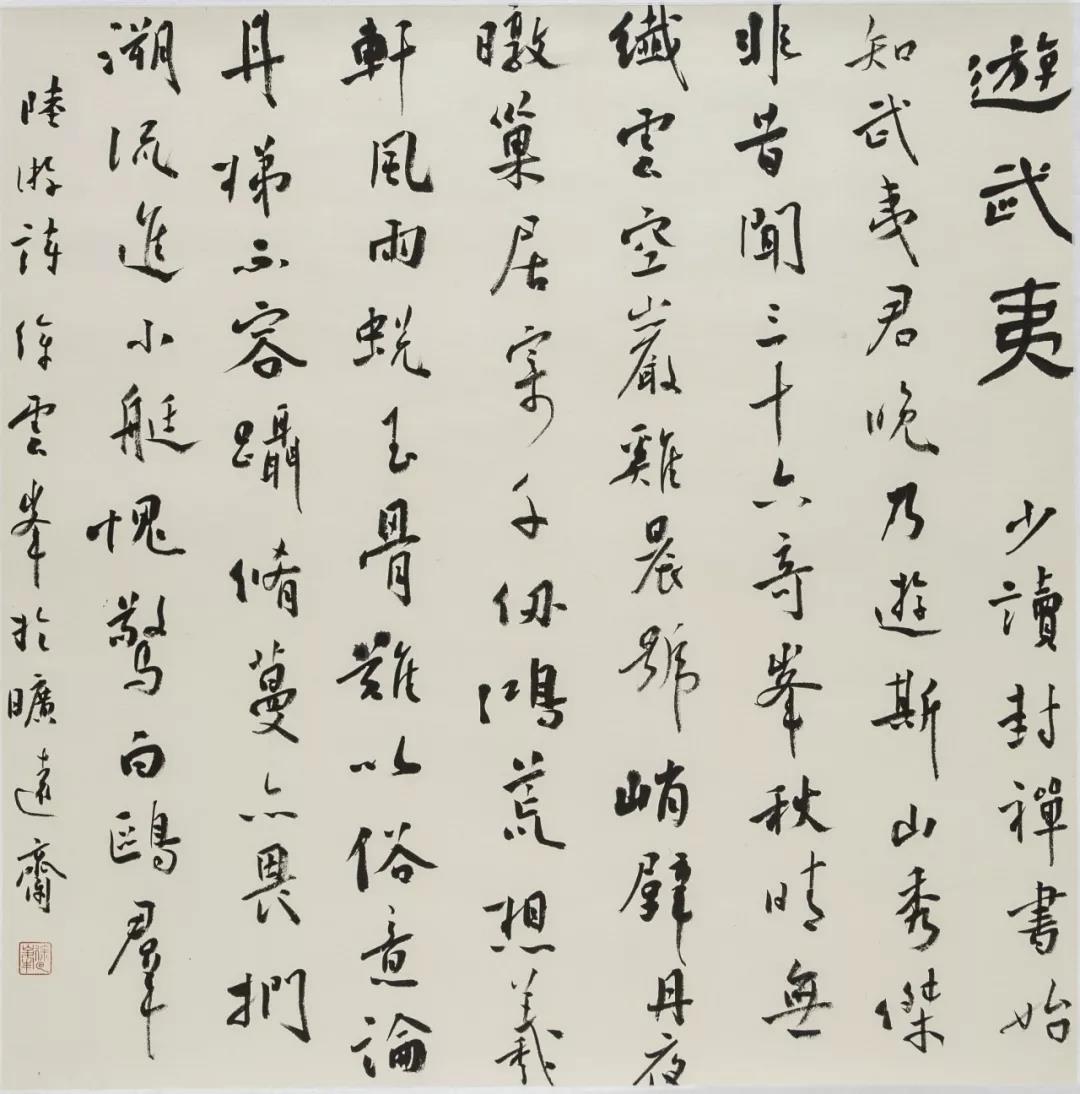 遊武夷 少讀封禪書始
知武夷君晚乃遊斯山秀傑
非昔聞三十六奇峯秋晴無
纖雲空巖雞晨號峭壁丹夜
暾巢居寄千仞鴻荒想羲
軒風雨蛻玉骨難以俗意論
丹梯不容躡脩蔓亦畏捫
溯流進小艇愧驚白鷗羣
陸游詩徐雲峯於曠遠齋